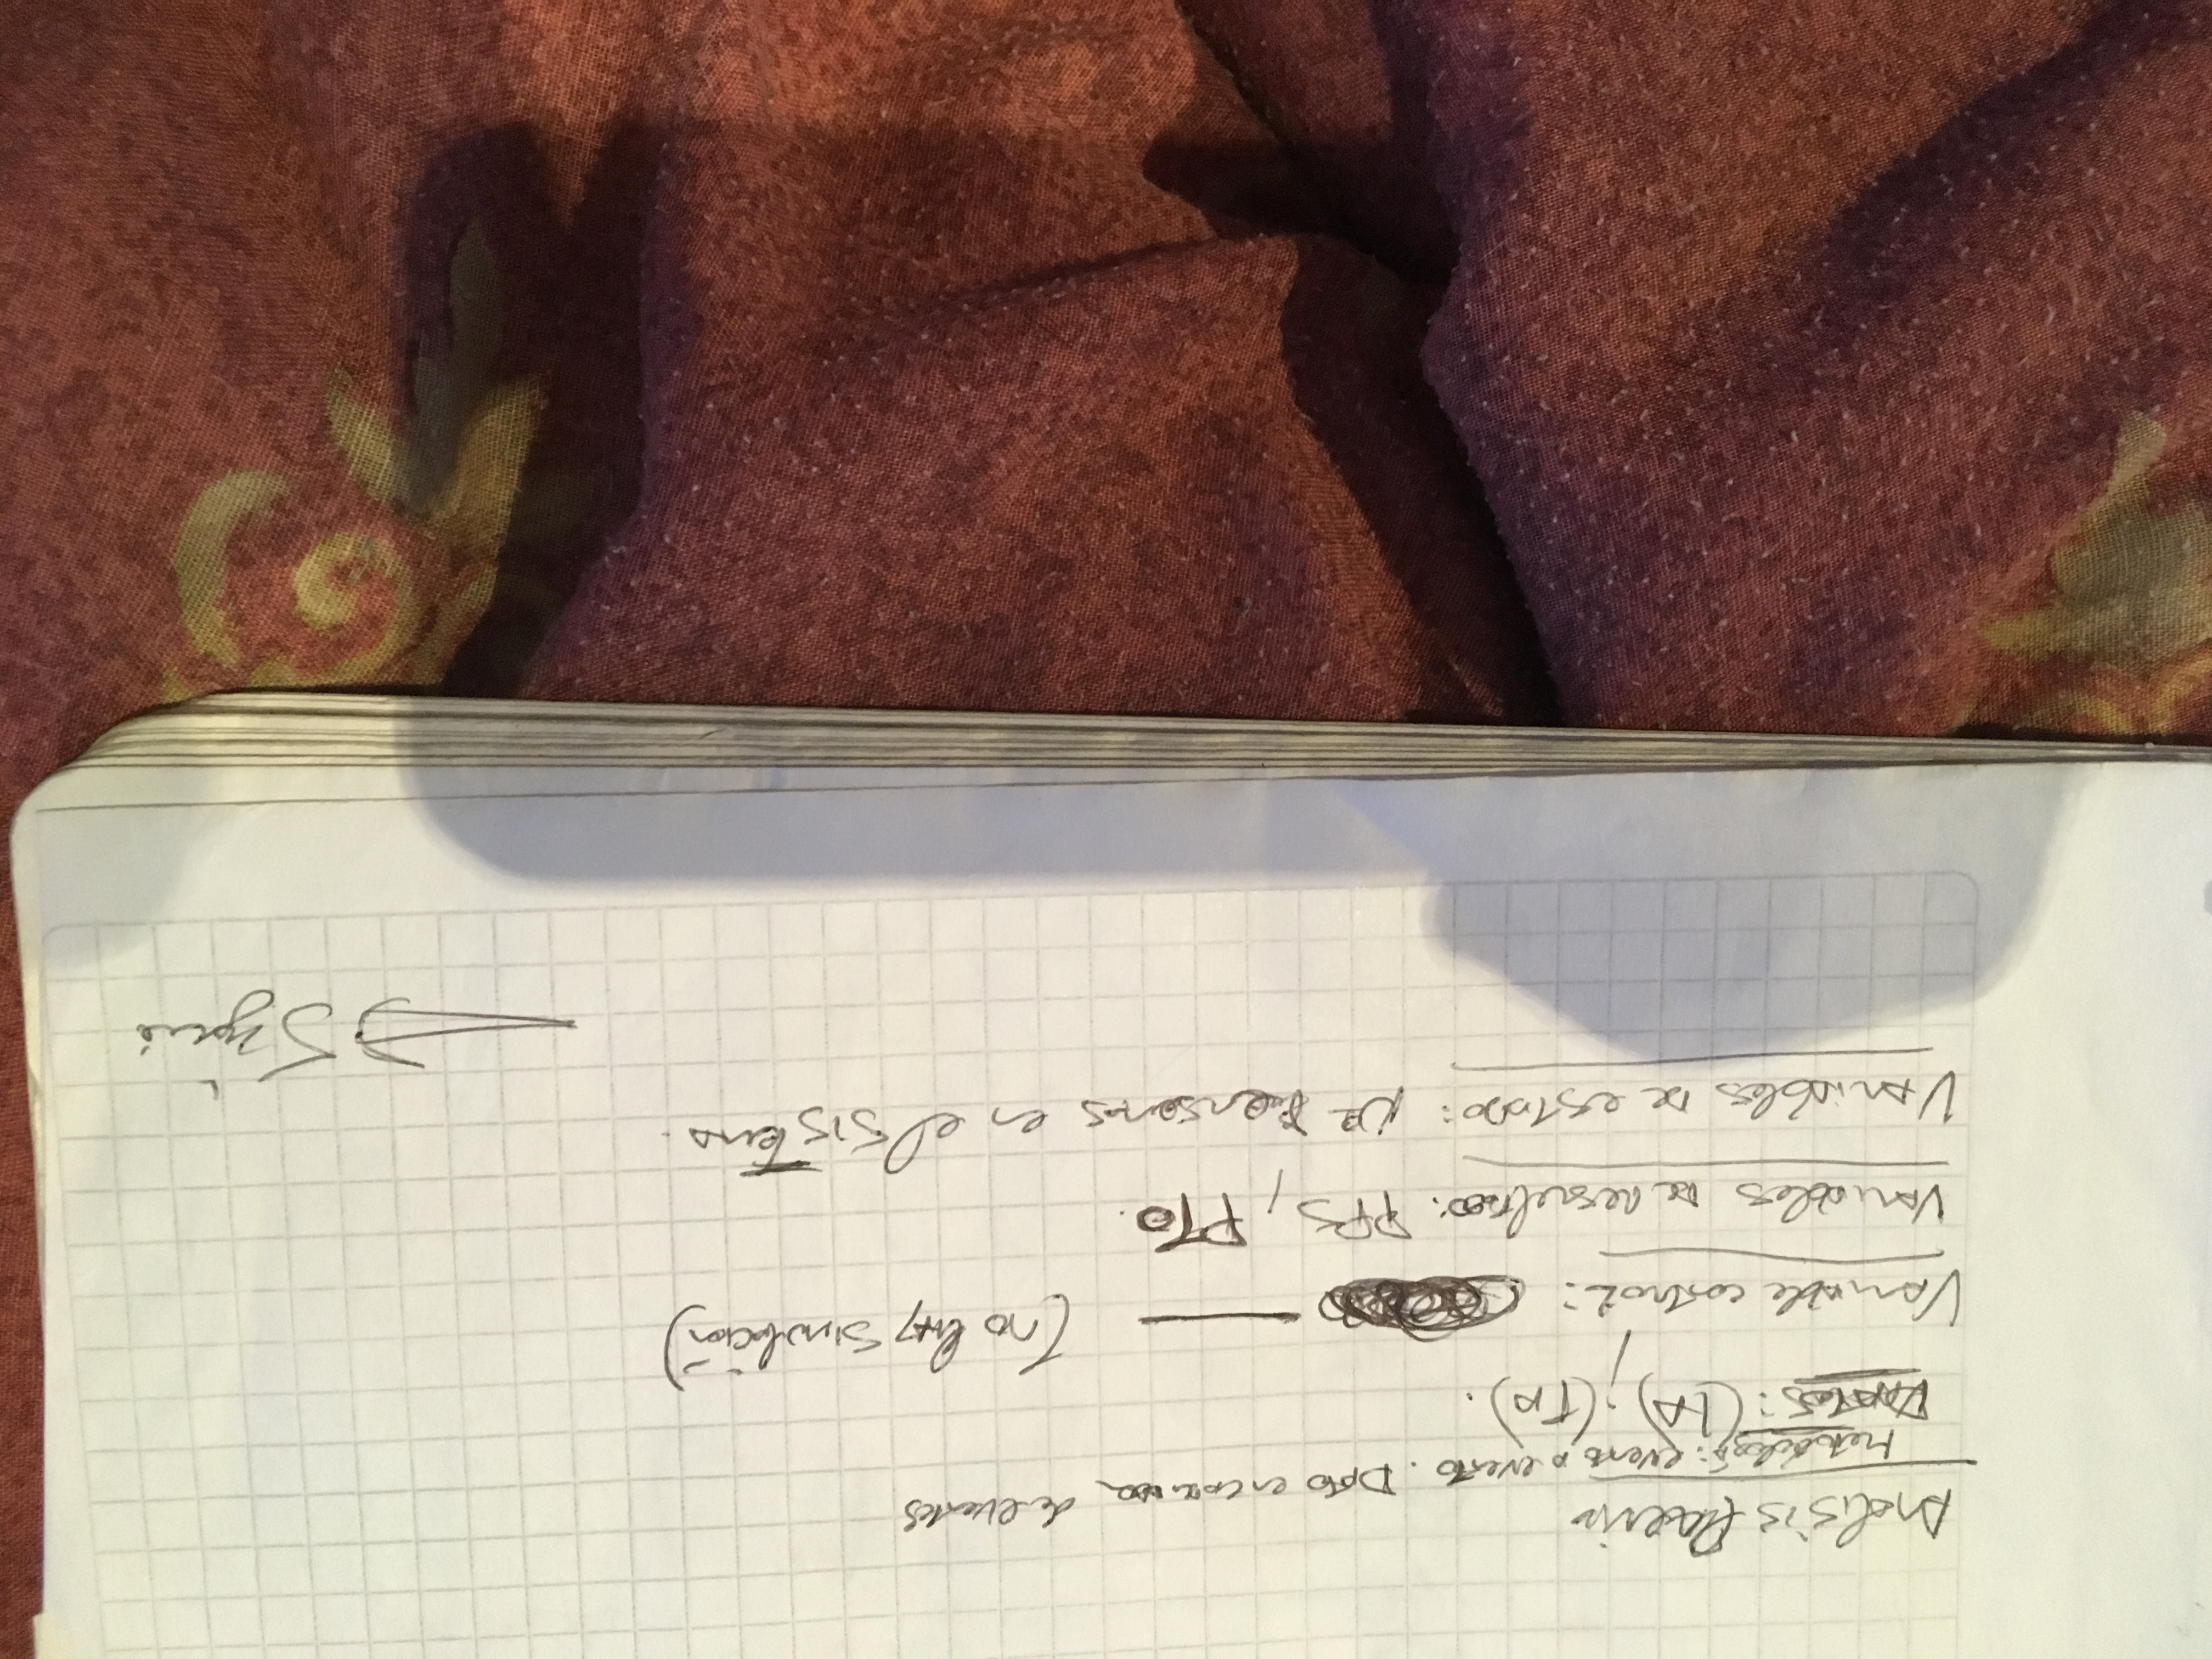 Analisis Previo
Metodología: evento a evento. Dpto en cada uno de eventos
Datos: (IA) ; (TA).
Variable control: — (no hay simulación)
Variables de resultado: PPS, PTO.
Variables de estado: Nº Personas en el sistema.
→ Sigue